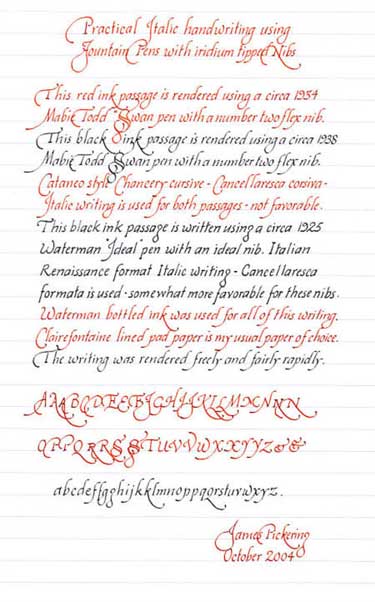 Practical Italic handwriting using
Fountain Pens with iridium tipped Nibs
This red ink passage is rendered using a circa 1934
Mabie Todd "Swan pen with a number two flex nib.
This black ink passage is rendered using a circa 1938
Mabie Todd Swan pen with a number two flex nib.
Cataneo style Chancery cursive - Cancellaresca corsiva -
Italic writing is used for both passages - not favorable.
This black ink passage is written using a circa 1925
Waterman "Ideal" pen with an ideal nib. Italian
Renaissance format Italic writing - Cancellaresca
formata is used - somewhat more favorable for these nibs.
Waterman bottled ink was used for all of this writing.
Clairefontaine lined pad paper is my usual paper of choice.
The writing was rendered freely and fairly rapidly.
AAABCDEEFGHIJKLMNNN
OPPQRRSSTUVVWXXYYZ&&
abcdeffgghijkklmnoppqrstuvwxyz.
James Pickering
October 2004